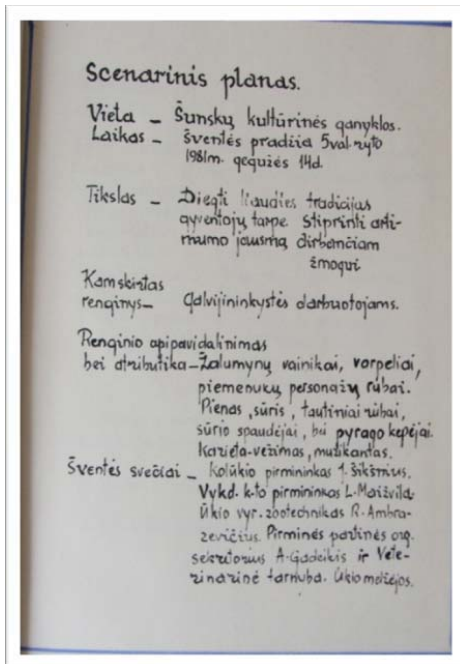 Scenarinis planas.
Vieta – Šunskų kultūrinės ganyklos.
Laikas – šventės pradžia 5val. ryto
1981m. gegužės 14d.
Tikslas – Diegti liaudies tradicijas
gyventojų tarpe. Stiprinti arti-
mumo jausmą dirbančiam
žmogui
Kam skirtas
renginys – Galvijininkystės darbuotojams.
Renginio apipavidalinimas
bei atributika – Žalumynų vainikai, varpeliai,
piemenukų personažų rūbai.
Pienas, sūris, tautiniai rūbai,
sūrio spaudėjai, bei pyrago kepėjai.
Karieta-vežimas, muzikantas.
Šventės svečiai – Kolūkio pirmininkas J. Šikšnius.
Vykd. k-to pirmininkas L. Maižvila.
Ūkio vyr. zootechnikas R. Ambra-
zevičius. Pirminės partinės org.
sekretorius A. Gadeikis ir Vete-
rinarinė tarnyba. Ūkio melžėjos.